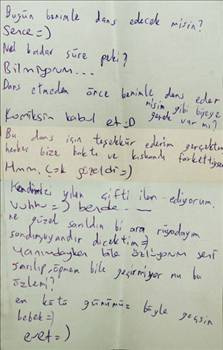 Bugün benimle dans edecek misin?
Sence =)
Ne kadar süre peki?
Bilmiyorum...
Dans etmeden önce benimle dans eder
misin gibi bi şeye
gerek var mı?
Komiksin kabul et =D
Bu dans için teşekkür ederim gerçekten
herkes bize baktı ve kıskandı farkettiysen
Hmm. Çok güzeldi =)
Kendimizi yılın çifti ilan ediyorum.
vuhhu =) bende...
ne güzel sarıldın bi ara rüyadayım
sandım uyandır dicektim =)
Yanımdayken bile özlüyorum seni
sarılıp, öpmen bile geçirmiyor nu bu
özlemi?
en kötü günümüz böyle geçsin
bebek =)
evet =)